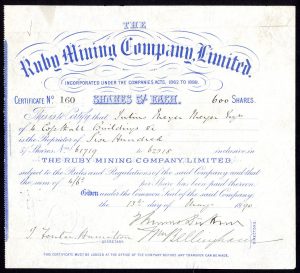 THE
Ruby Mining Company, Limited.
INCORPORATED UNDER THE COMPANIES ACTS, 1862 TO 1886.
CERTIFICATE No 160 SHARES 5/- EACH. 600 SHARES.
This is to Certify that Julius Meyer
of 4 Copthall Buildings EC
is the Proprietor of Six Hundred
5/- Shares Nos 61719 to 62318 inclusive in
THE RUBY MINING COMPANY, LIMITED,
subject to the Rules and Regulations of the said Company and that
the sum of per Share has been paid thereon
Given under the Common Seal of the said Company
the 13th day of May 1890
SECRETARY.
THIS CERTIFICATE MUST BE LODGED AT THE OFFICE OF THE COMPANY BEFORE ANY TRANSFER CAN BE MADE.